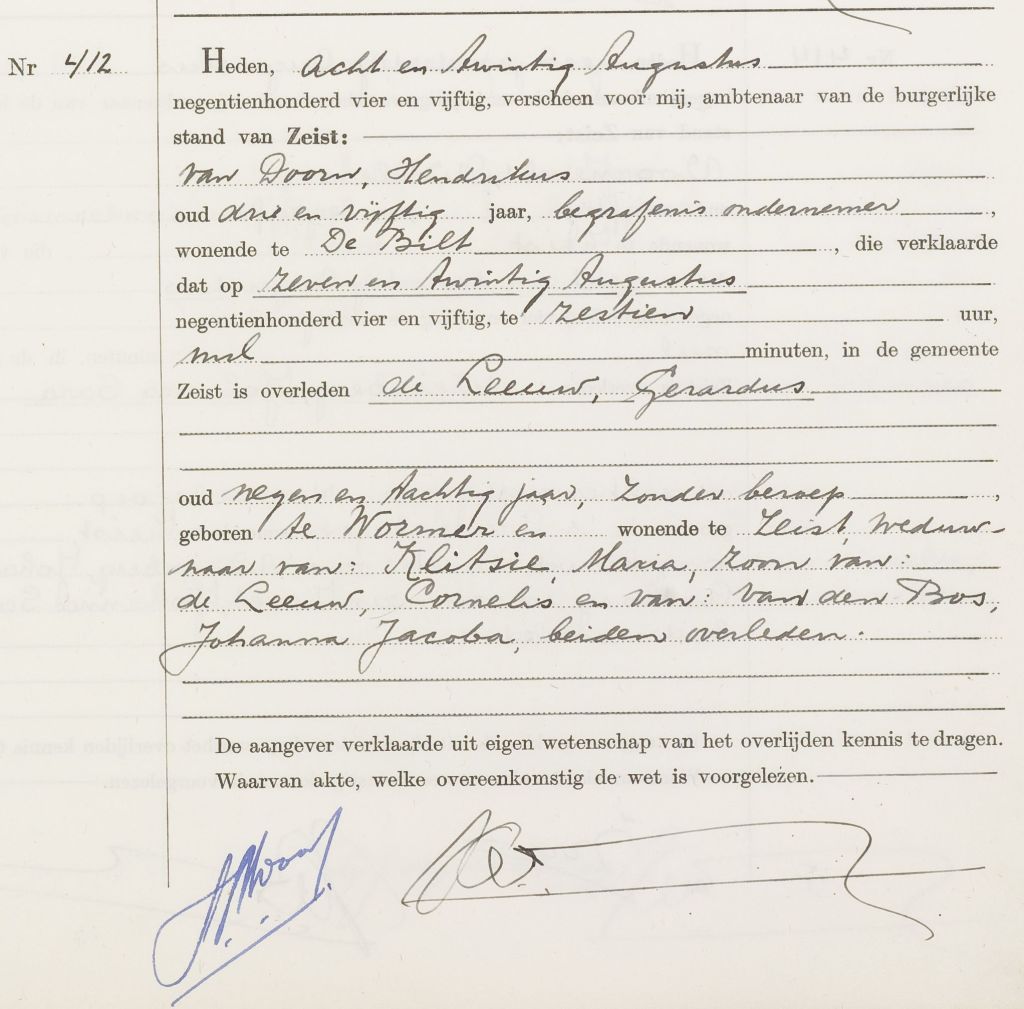 Nr 412
Heden, acht en twintig Augustus
negentienhonderd vier en vijftig, verscheen voor mij, ambtenaar van de burgerlijke
stand van Zeist:
van Doorn, Hendrikus
oud drie en vijftig jaar, begrafenis ondernemer,
wonende te De Bilt, die verklaarde
dat op zeven en twintig Augustus
negentienhonderd vier en vijftig, te zestien uur,
nul minuten, in de gemeente
Zeist is overleden de Leeuw, Gerardus
oud negen en tachtig jaar, zonder beroep,
geboren te Wormer en wonende te Zeist, weduw-
naar van: Klitsie, Maria, zoon van:
de Leeuw, Cornelis en van: van den Bos,
Johanna Jacoba, beiden overleden.
De aangever verklaarde uit eigen wetenschap van het overlijden kennis te dragen.
Waarvan akte, welke overeenkomstig de wet is voorgelezen.